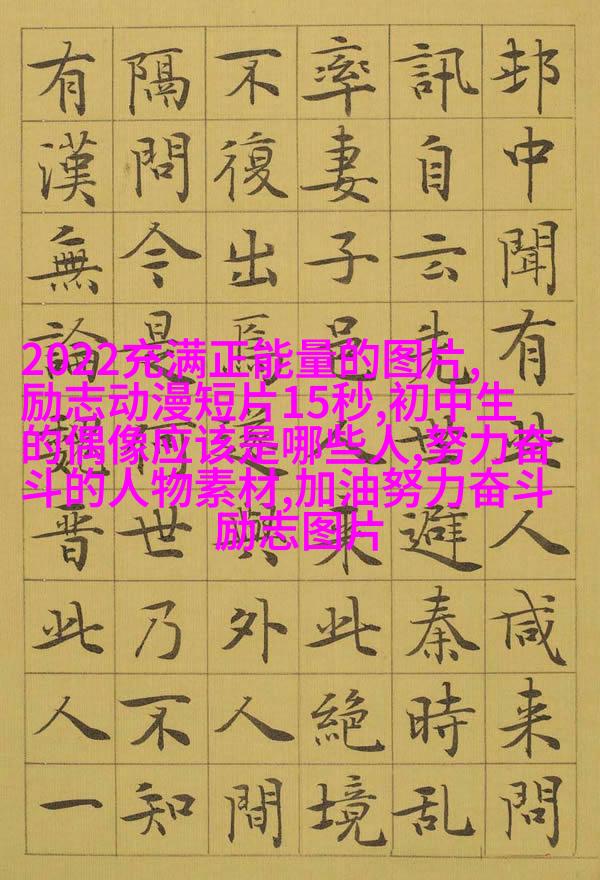 邨中聞有此人咸来問
訊自云先世避秦時亂
率妻子邑人来此絶境
不復出焉遂與外人間
隔問今是何世乃不知
有漢無論魏晋此人一
2022充满正能量的图片,
励志动漫短片15秒,初中生
的偶像应该是哪些人,努力奋
斗的人物素材,加油努力奋斗
励志图片